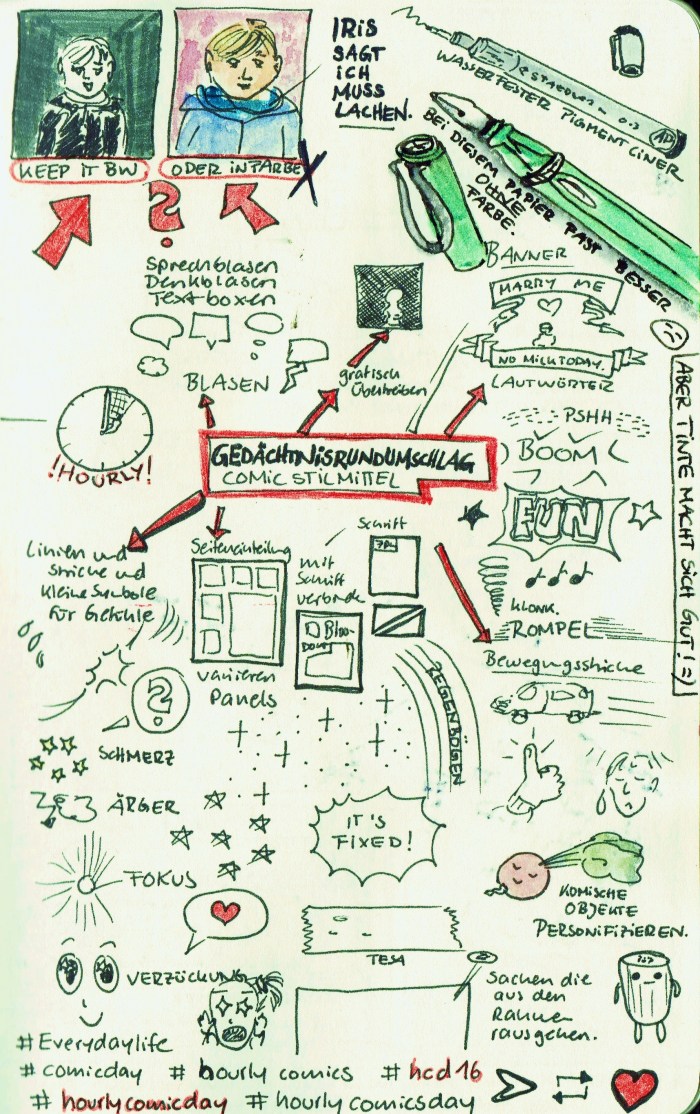 KEEP IT BW
ODER IN FARBE
?
IRIS
SAGT
ICH
MUSS
LACHEN.
STAEDTLER
0.3
WASSERFESTER PIGMENT LINER
BEI DIESEM PAPIER PAST BESSER
OHNE
FARBE.
ABER TINTE MACHT SICH GUT! =)
Sprechblasen
Denkblasen
Text-boxen
BLASEN
grafisch
Übertreiben
BANNER
MARRY ME
NO MILK TODAY.
LAUTWÖRTER
PSHH
BOOM
FUN
KLONK.
ROMPEL
!HOURLY!
GEDÄCHTNISRUNDUMSCHLAG
COMIC STILMITTEL
Linien und
Striche und
kleine Symbole
für Gefühle
Seiteneinteilung
variieren
Panels
mit
Schrift
verbinde
Schrift
Bewegungsstriche
REGENBÖGEN
?
SCHMERZ
ÄRGER
FOKUS
VERZÜCKUNG
IT'S
FIXED!
TESA
KOMISCHE
OBJEKTE
PERSONIFIZIEREN.
Sachen die
aus den
Rahmen
rausgehen.
#Everydaylife
# comicday # hourly comics # hcd16
# hourlycomicday # hourlycomicsday